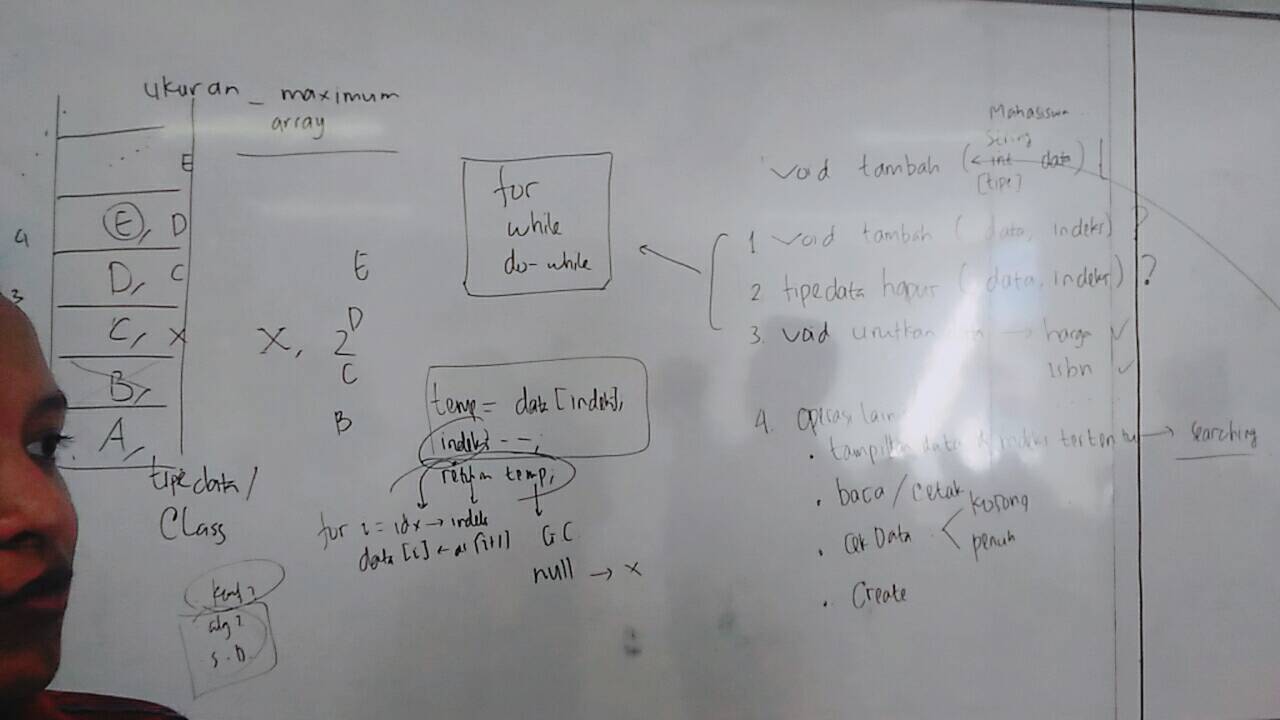 ukuran_maximum
array
E
E, D
4
D, C
3
C, X
B,
A,
tipe data/
Class
E
D
X, 2
C
B
for
while
do-while
temp = data [indeks];
indeks --;
return temp;
for i = idx → indeks
data [i] ← [i+1]
GC
null → x
S.D
Mahasiswa
String
void tambah (int data) {
[tipe]
1 void tambah ( data, indeks) ?
2 tipe data hapus ( data, indeks) ?
3. void urutkan → harga ✓
Isbn ✓
4. operasi lain
. tampilkan data indeks tertentu → Searching
. baca / cetak
. cek Data < kosong
penuh
. Create